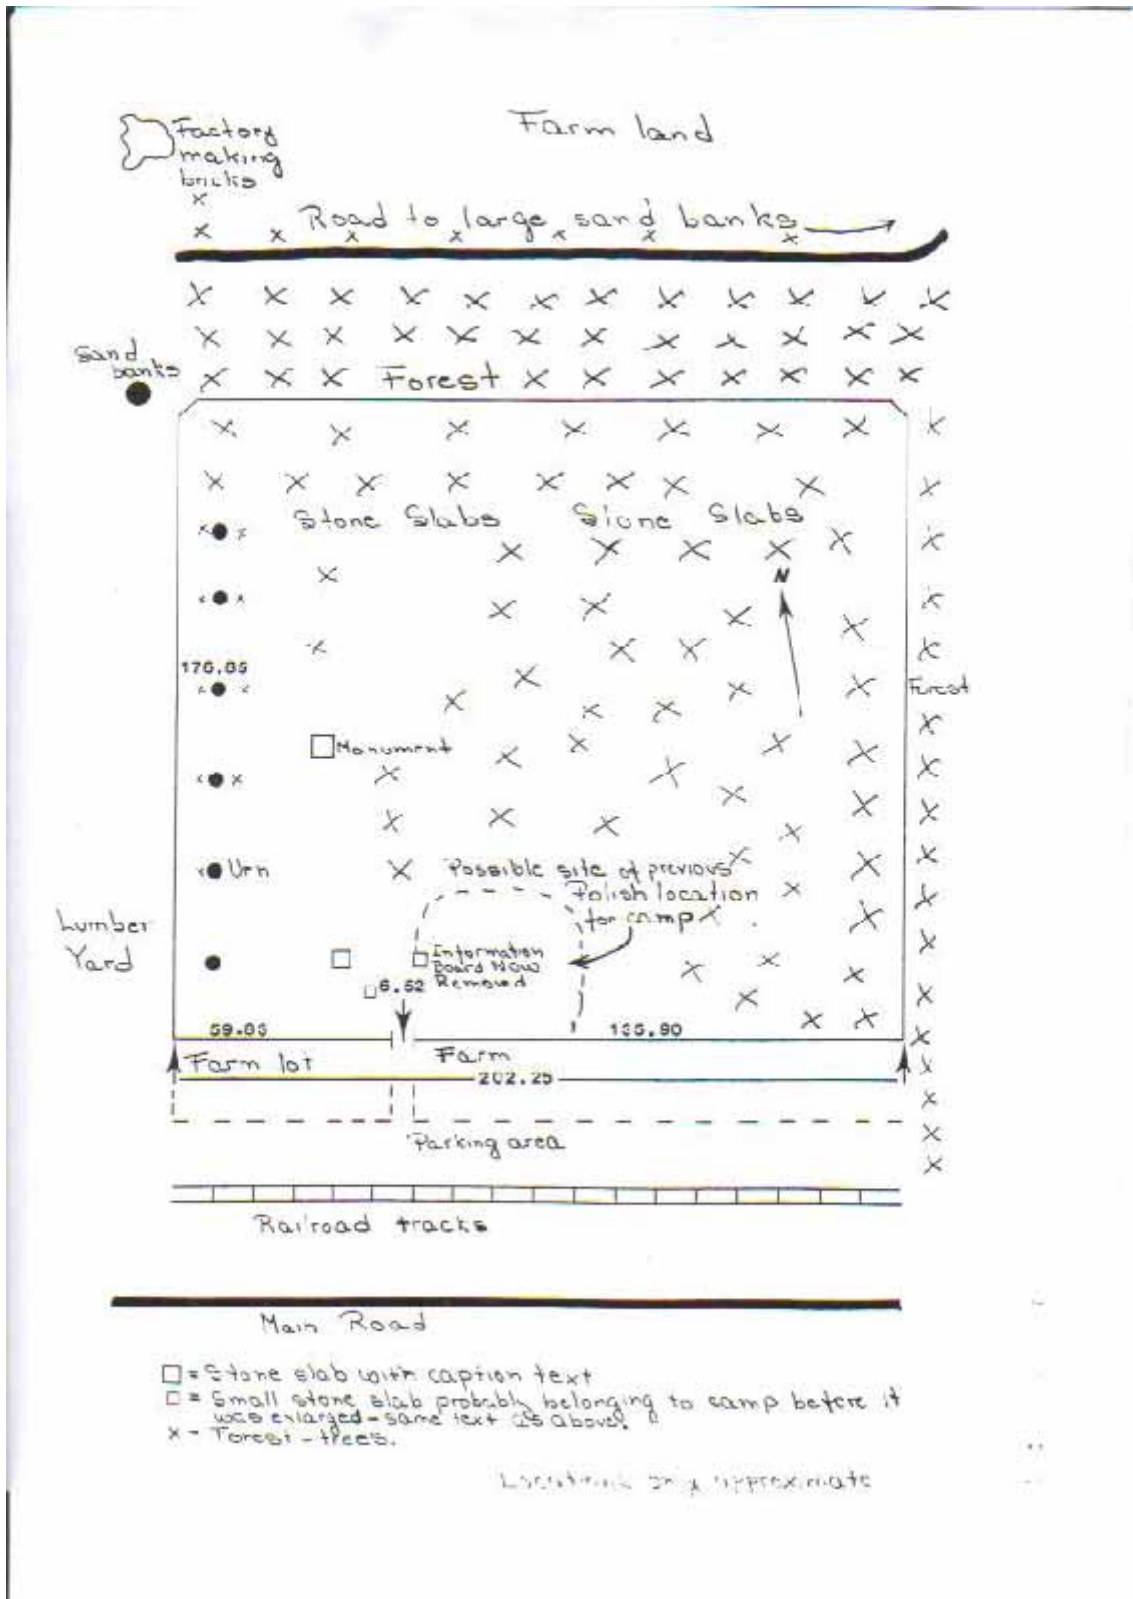 Farm land
Factory
making
bricks
Road to large sand banks
Sand
banks
Forest
Stone Slabs Stone Slabs
N
Forest
Monument
Urn
Possible site of previous
Polish location
for camp
Lumber
Yard
Information
Board Now
Removed
6.52
59.03
Farm lot
Farm
202.25
Parking area
Railroad tracks
Main Road
□ = Stone slab with caption text
□ = Small stone slab probably belonging to camp before it
was enlarged - same text as above.
x - Forest - trees.
Locations only approximate